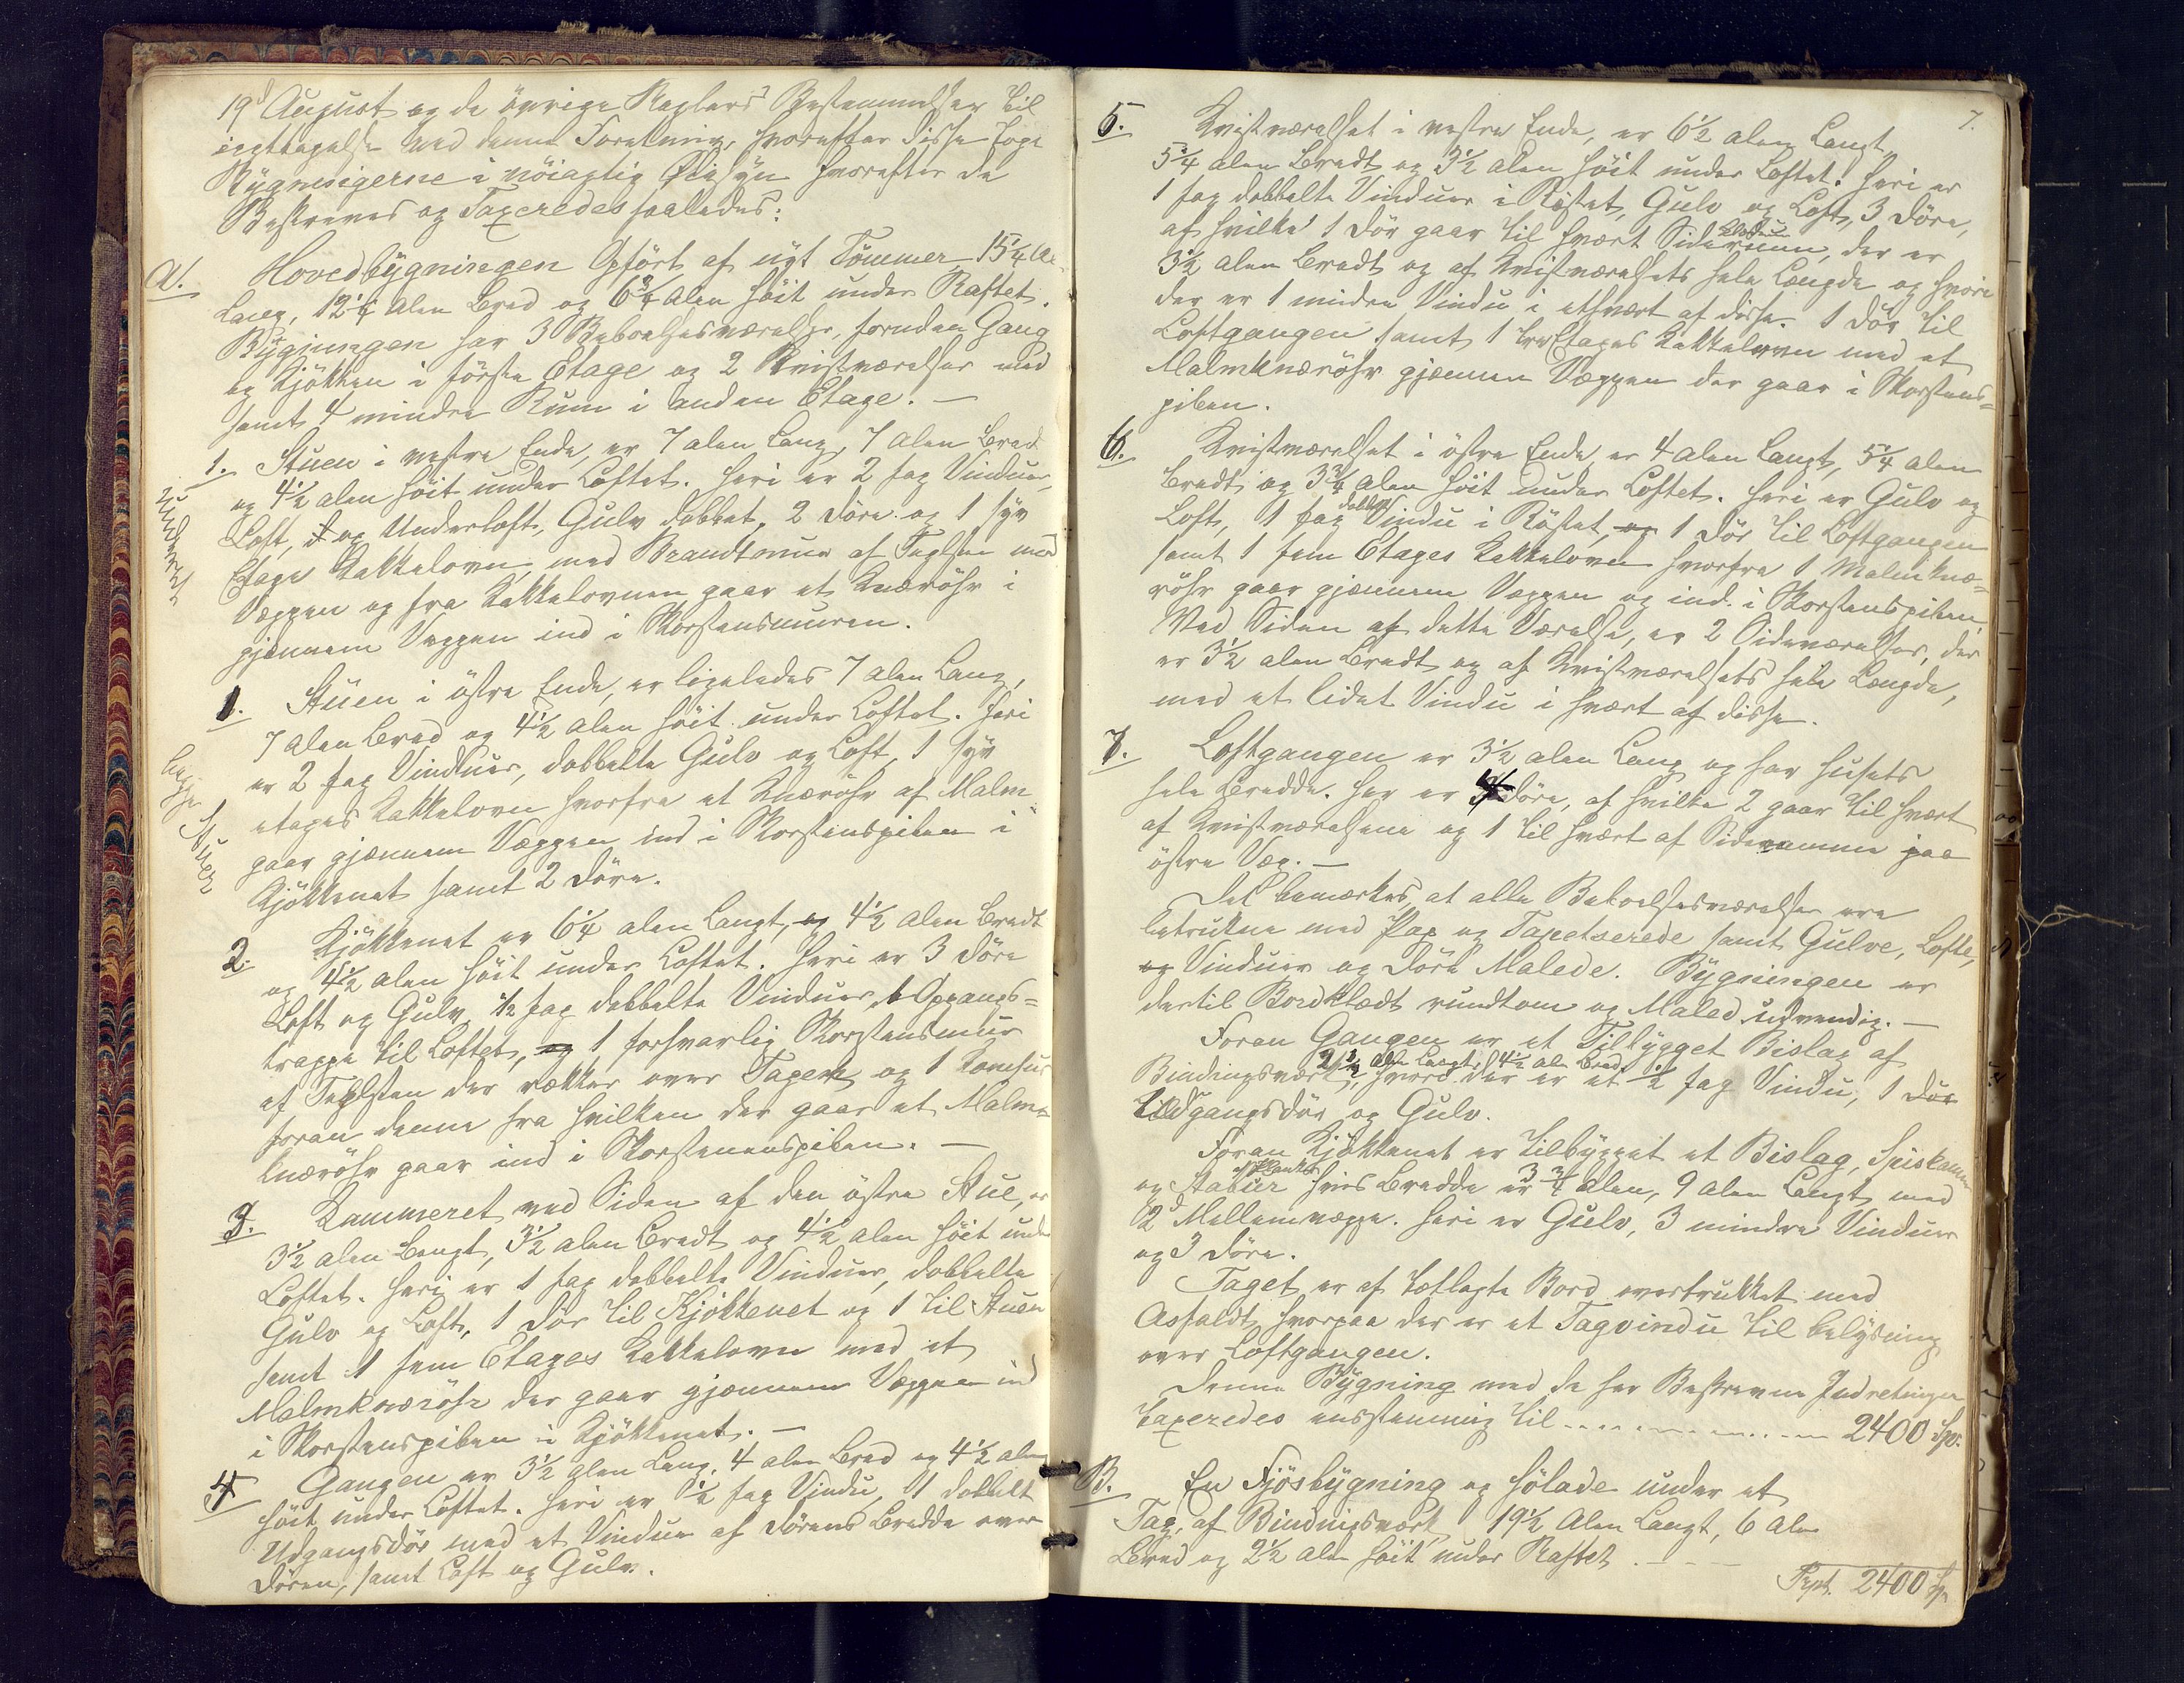 19d August og de övrige Reglers Bestemmelser til
iagttagelse ved denne Foretning, hvorefter disse toge
Bygningerne i nöiagtig Öiesyn hvorefter de
Beskreves og Taxeredes saaledes:
A. Hovedbygningen Opfört af nyt Tömmer 15 1/4 Al.
Lang, 12 1/4 Alen Bred og 6 3/4 Alen höit under Raftet.
Bygningen har 3 Beboelsesværelser, foruden Gang
og Kjökken i förste Etage og 2 Kvistværelser med
samt 4 mindre Rum i anden Etage. —
1. Stuen i vestre Ende, er 7 alen Lang, 7 Alen Bred
og 4 1/2 alen höit under Loftet. Heri er 2 fag Vinduer,
Loft, og Underloft, Gulv dobbet, 2 döre og 1 syv
Etage Kakkelovn, med Brandtmur af Teglsten mod
Væggen og fra Kakkelovnen gaar et Knæröhr i
gjennem Væggen ind i Skorstensmuren.
1. Stuen i östre Ende, er ligeledes 7 Alen Lang,
7 Alen Bred og 4 1/2 Alen höit under Loftet. Heri
er 2 fag Vinduer, dobbelte Gulv og Loft, 1 syv
etages Kakkelovn hvorfra et Knæröhr af Malm
gaar gjennem Væggen ind i Skorstenspiben i
Kjökkenet samt 2 döre.
begge Stuer
2. Kjökkenet er 6 1/4 alen Langt, og 4 1/2 Alen Bredt
og 4 1/2 alen höit under Loftet. Heri er 3 döre
Loft og Gulv, 1/2 fag dobbelte Vinduer, 1 Opgangs=
trappe til Loftet, og 1 forsvarlig Skorstensmur
af Teglsten der rækker over Taget og 1 Komfur
foran denne fra hvilken der gaar et Malm=
knæröhr gaar ind i Skorstenenspiben. —
3. Kammeret ved Siden af den östre Stue, er
3 1/2 alen Langt, 3 1/2 alen Bredt og 4 1/2 alen höit under
Loftet. Heri er 1 fag dobbelte Vinduer, dobbelte
Gulv og Loft, 1 dör til Kjökkenet og 1 til Stuen
samt 1 fem Etages Kakkelovn med et
Malmknæröhr der gaar gjennem Væggen ind
i Skorstenspiben i Kjökkenet. —
4 Gangen er 3 1/2 alen Lang, 4 alen Bred og 4 1/2 alen
höit under Loftet. Heri er 1/2 fag Vindu, 1 dobbelt
Udgangsdör med et Vindue af dörens Bredde over
Dören, samt Loft og Gulv.
7.
5. Kvistværelset i vestre Ende, er 6 1/2 alen Langt,
5 1/4 alen Bredt og 3 1/2 alen höit under Loftet. Heri er
1 fag dobbelte Vinduer i Röstet, Gulv og Loft, 3 döre,
af hvilke 1 dör gaar til hvert Siderum, der er
3 1/2 alen Bredt og af Kvistværelsets hele Længde og hvori
der er 1 mindre Vindu i ethvert af disse. 1 dör til
Loftgangen samt 1 tre Etages Kakkelovn med et
Malmknæröhr gjennem Væggen der gaar i Skorstens=
piben.
6. Kvistværelset i östre Ende er 4 alen Langt, 5 1/4 alen
Bredt og 3 3/4 alen höit under Loftet. Heri er Gulv og
Loft, 1 fag dobbelt Vindu i Röstet, og 1 dör til Loftgangen
samt 1 fem Etages Kakkelovn hvorfra 1 Malmknæ=
röhr gaar gjennem Væggen og ind i Skorstenspiben,
Ved Siden af dette Værelse, er 2 Sideværelser, der
er 3 1/2 alen Bredt og af Kvistværelsets hele Længde,
med et lidet Vindu i hvert af disse.
7. Loftgangen er 3 1/2 alen Lang og har husets
hele Bredde. Her er 4 döre, af hvilke 2 gaar til hvert
af Kvistværelsene og 1 til hvert af Siderummene paa
östre Væg. —
Det bemærkes, at alle Beboelsesværelser ere
betrukne med Pap og Tapetserede samt Gulve, Lofte,
og Vinduer og döre Malede. Bygningen er
dertil Bordklædt rundtom og Maled udvendig. —
Foran Gangen er et Tilbygget Bislag af
2 1/2 alen Langt, 4 1/2 al. Bred
Bindingsverk, hvori der er et 1/2 fag Vindu, 1 dör
Udgangsdör og Gulv.
Foran Kjökkenet er tilbygget et Bislag, Spiskammer
og Stabur af Planker hvis Bredde er 3 3/4 alen, 9 alen Langt med
2 Mellemvægge. Heri er Gulv, 3 mindre Vinduer
og 3 döre.
Taget er af tætlagte Bord overtrukket med
Asfaldt, hvorpaa der er et Tagvindu til belysning
over Loftgangen.
Denne Bygning med de her Beskrevne Indretninger
taxeredes enstemmig til - - - - - - 2400 Spd.
B. En Fjösbygning og Hölade under et
Tag, af Bindingsverk, 19 1/2 Alen Langt, 6 Alen
Bred og 2 1/2 alen höit under Raftet. - - -
Trpt. 2400 Sp